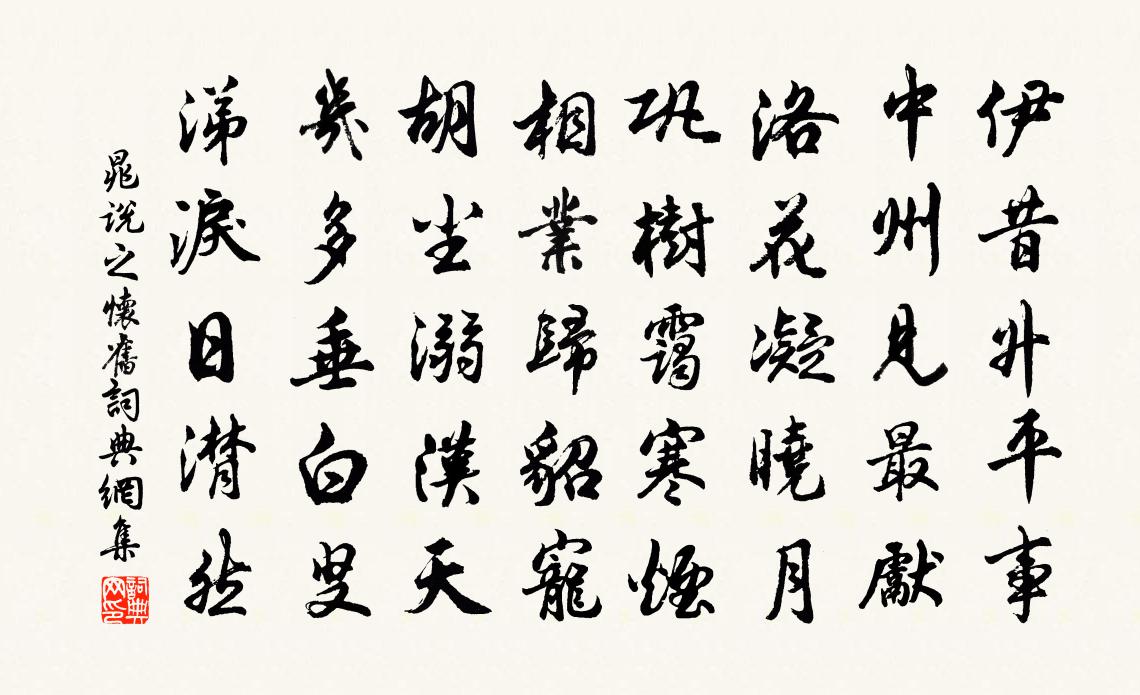 伊昔升平事
中州見最獻
洛花凝曉月
巩樹靄寒煙
相業歸貂寵
胡尘溺漢天
幾多垂白叟
涕淚日潸然
晁說之懷舊詞典網集
詞典网印